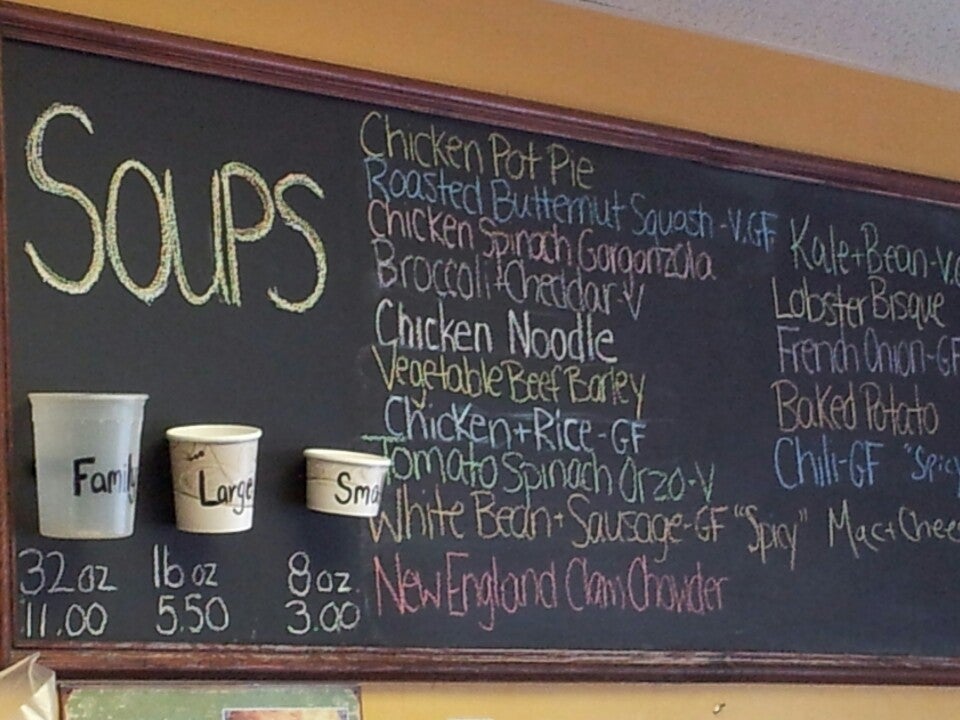 Soups
Chicken Pot Pie
Roasted Butternut Squash-V.GF
Chicken Spinach Gorgonzola
Broccoli+Cheddar-V
Chicken Noodle
Vegetable Beef Barley
Chicken+Rice-GF
Tomato Spinach Orzo-V
White Bean+Sausage-GF "Spicy"
New England Clam Chowder
Kale+Bean-V.G
Lobster Bisque
French Onion-GF
Baked Potato
Chili-GF "Spicy
Mac+Chees
Family
Large
Sma
32 oz 16 oz 8 oz.
11.00 5.50 3.00